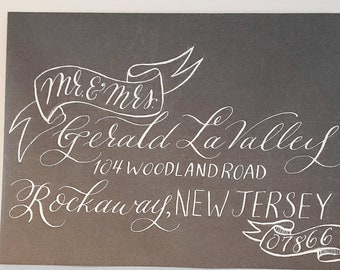 Mr. & Mrs.
Gerald LaValley
104 WOODLAND ROAD
Rockaway, NEW JERSEY
07866